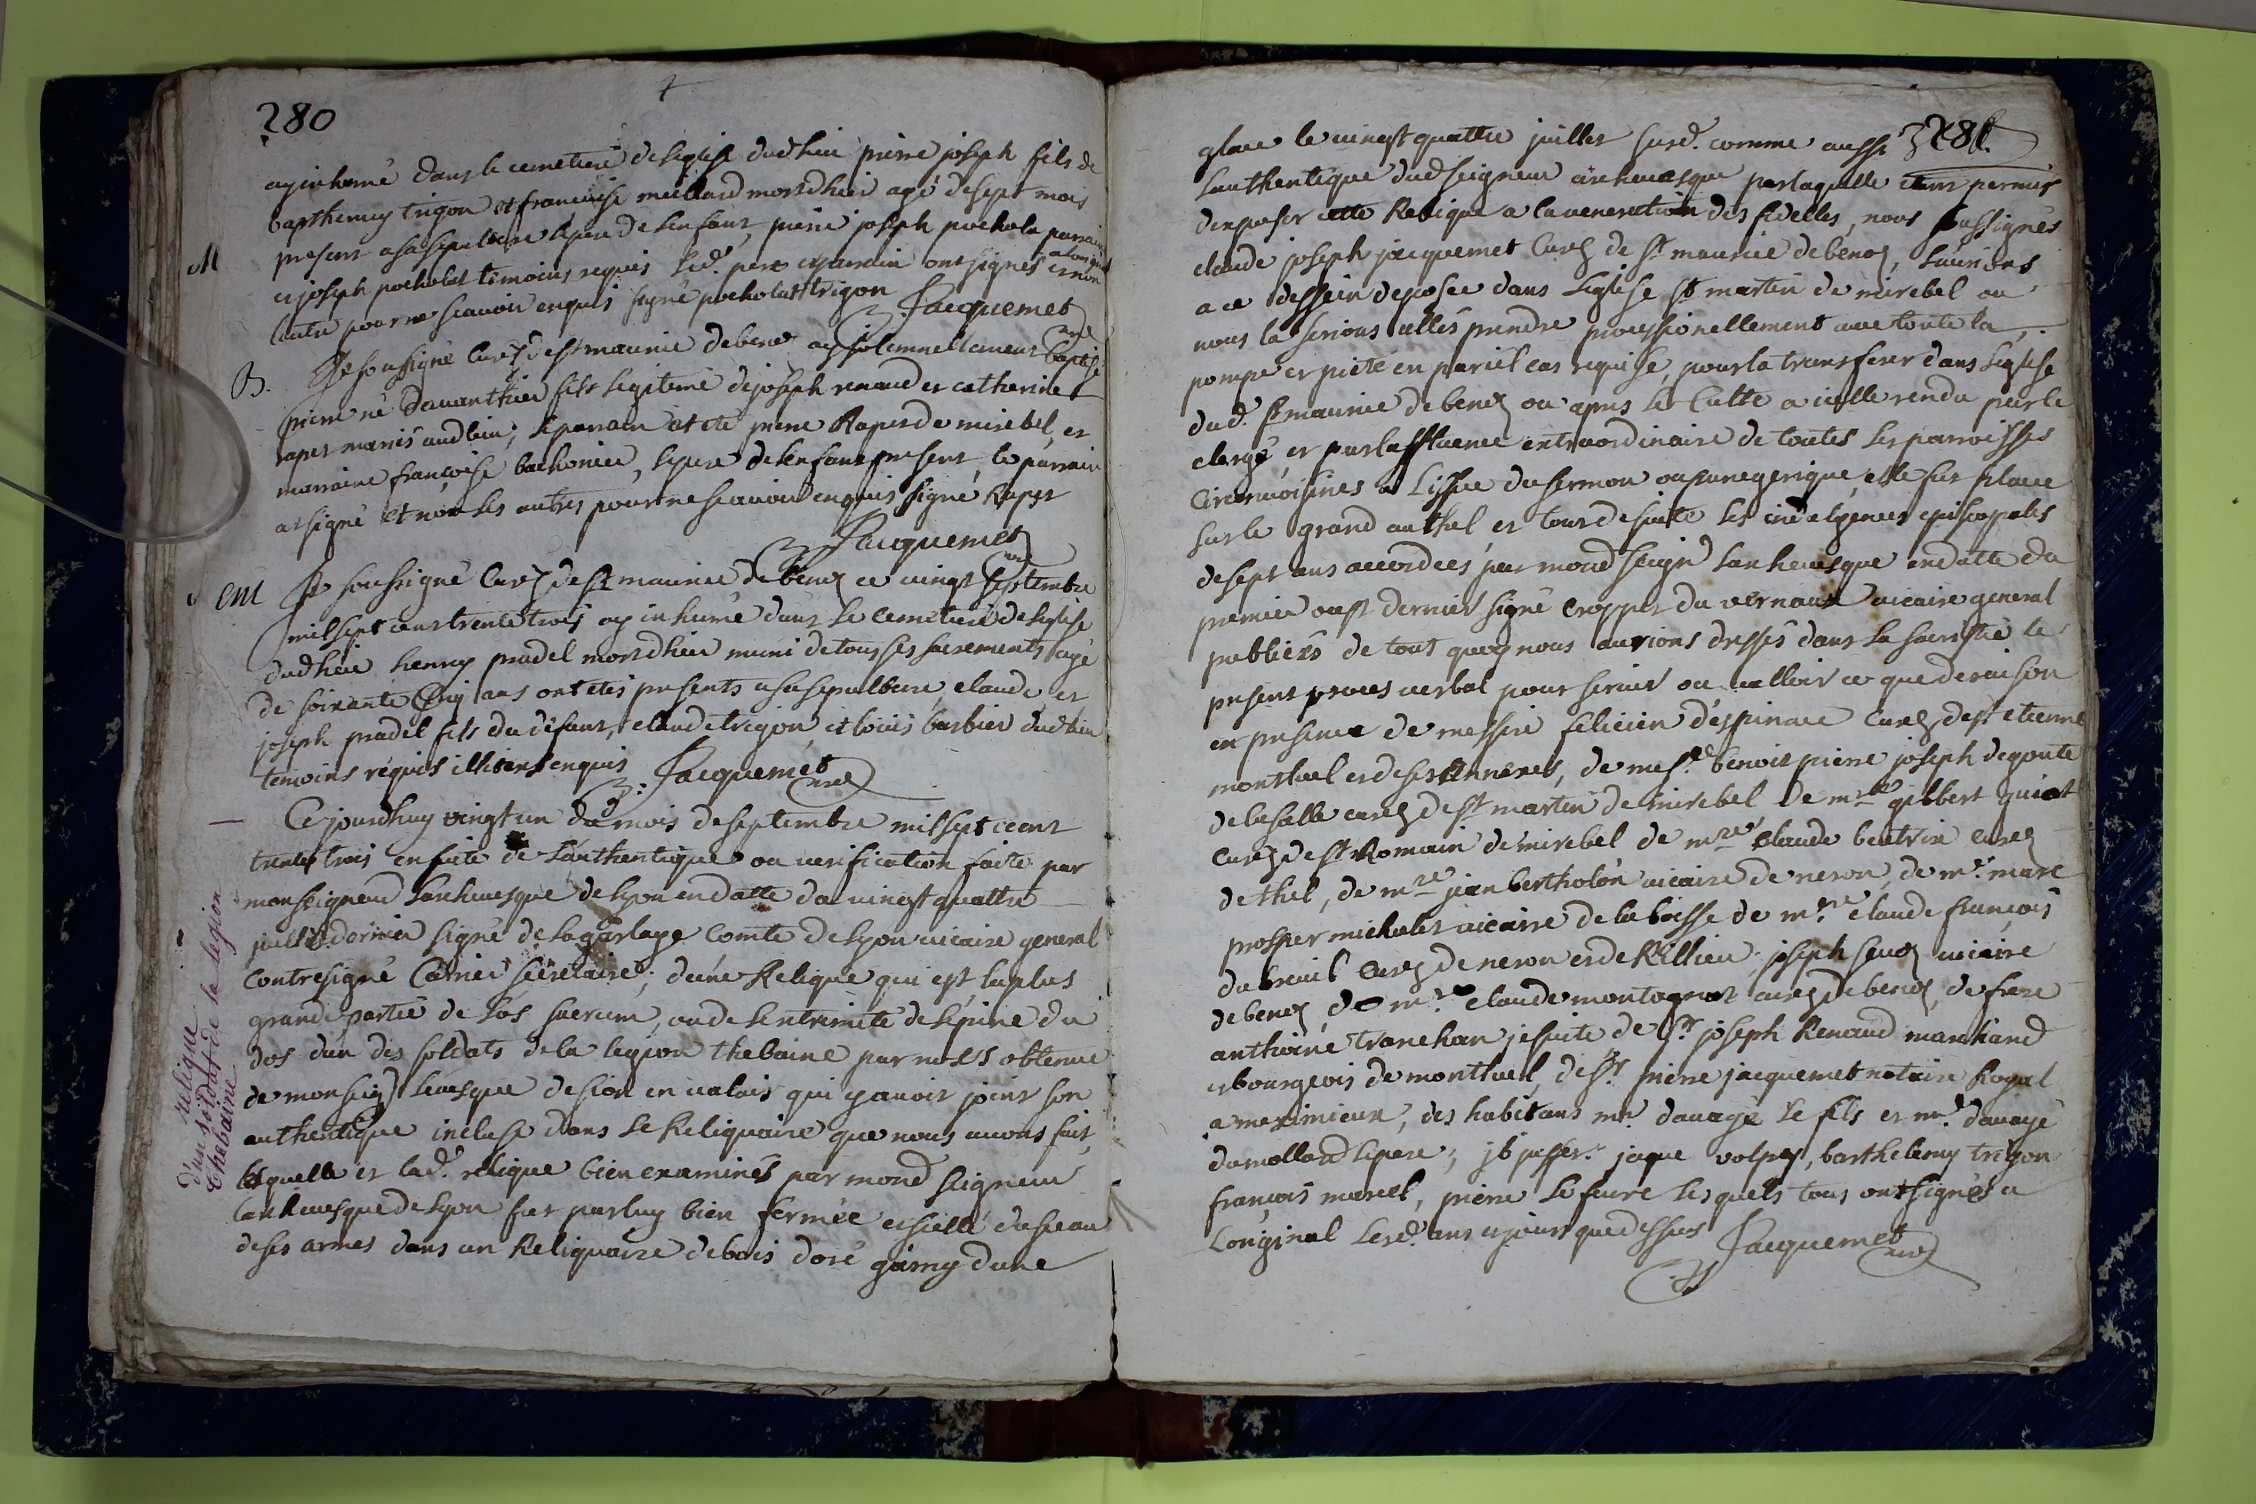 280
ay inhumé dans le cemetiere de leglise dud lieu pierre joseph fils de
barthemy trigon et francoise meillard mort dhier agé de sept mois
M
present a sa sepulture le pere de lenfant, pierre joseph pochola parrain
et joseph pocholat temoins requis led. pere et parrain ont signés a loriginal et non
lautre pour ne scavoir enquis signé pocholat trigon Jacquemet curé
B. Je soussigné Curéz de st maurice de benoz ay solemnellement baptisé
pierre né davanthier fils legitime de joseph renaud et catherine
raper mariés aud lieu; le parrain at eté pierre Raper de mirebel, et
marraine françoise bachonier, le pere de lenfant present, le parrain
at signé et non les autres pour ne scavoir enquis signé Raper
Jacquemet curé
em Je soussigné Curéz de st maurice de benoz ce vingt septembre
mil sept cent trente trois ay inhumé dans le cemetiere de leglise
dud lieu henry pradel mort dhier muni de tous ses sacrements agé
de soixante ans ont etés presents a sa sepulture, claude et
joseph pradel fils du defunt, claude trigon, et loüis barbier dud lieu
temoins requis illiterés enquis Jacquemet curé
Ce jourdhuy vingt un du mois de septembre mil sept cent
trente trois en suite de lauthentique ou verification faite par
monseigneur larchevesque de lyon en datte du vingt quattre
juillet dernier signé de la garlaye comte de lyon vicaire general
contresigné Carrier secretaire; dune Relique qui est la plus
grande partie de los sacrum, ou de lextremité de lepine du
dos dun des soldats de la legion thebaine par nous obtenue
de monseigr levesque de sion en valais qui y avoit joint son
authentique incluse dans le Reliquaire que nous avons fait,
laquelle et lad. relique bien examinés par mond seigneur
larchevesque de lyon fut par luy bien fermée et scellé du sceau
de ses armes dans un Reliquaire de bois doré garny dune
relique
dun soldat de la legion
thebaine
281
glace le vingt quattre juillet susd. comme aussi
lauthentique dud seigneur archevesque par laquelle etant permis
dexposer cette Relique a la veneration des fidelles, nous soussignés
claude joseph jacquemet Curéz de st maurice de benoz, laurions
a ce dessein deposée dans leglise st martin de mirebel ou
nous la serions allés prendre processionellement avec toute la
pompe et pieté en pareil cas requise, pour la transferer dans leglise
dud. st maurice de benoz ou apres le Culte a icelle rendu par le
clergé, et par laffluence extraordinaire de toutes les parroisses
circonvoisines a lissue du sermon ou panegerique, elle fut placée
sur le grand authel et tout de suite les indulgences episcopales
de sept ans accordées par mond seigr larchevesque en datte du
premier oust dernier signé cropper du vernaux vicaire general
publiées de tout quoy nous aurions dressés dans la sacristie le
present proces verbal pour servir ou valloir ce que de raison
en presence de messire felicien despinace curéz de st etienne
montluel et de ses Annexes, de messr. benoit pierre joseph degoute
de la salle curéz de st martin de mirebel, de mre gilbert guiot
curéz de st Romain de mirebel de mre claude beutrix curéz
de thil, de mre jean bertholon vicaire de neron, de mr. marc
prosper michalet vicaire de la boisse de mre claude françois
dubreuil curéz de neron et de Rillieu, joseph vicaire
de benoz, de mr. claude montagnat curéz de benoz, de frere
anthoine tranchan jesuite de sr joseph Renaud marchand
et bourgeois de montluel, de sr. pierre jacquemet notaire Royal
a meximieux, des habitans mr. davayé le fils et mr. davayé
damollard le pere, jaque volpey, barthelemy trigon
françois marcel, pierre le faure lesquels tous ont signés a
loriginal lesd. ans et jour que dessus Jacquemet
curé